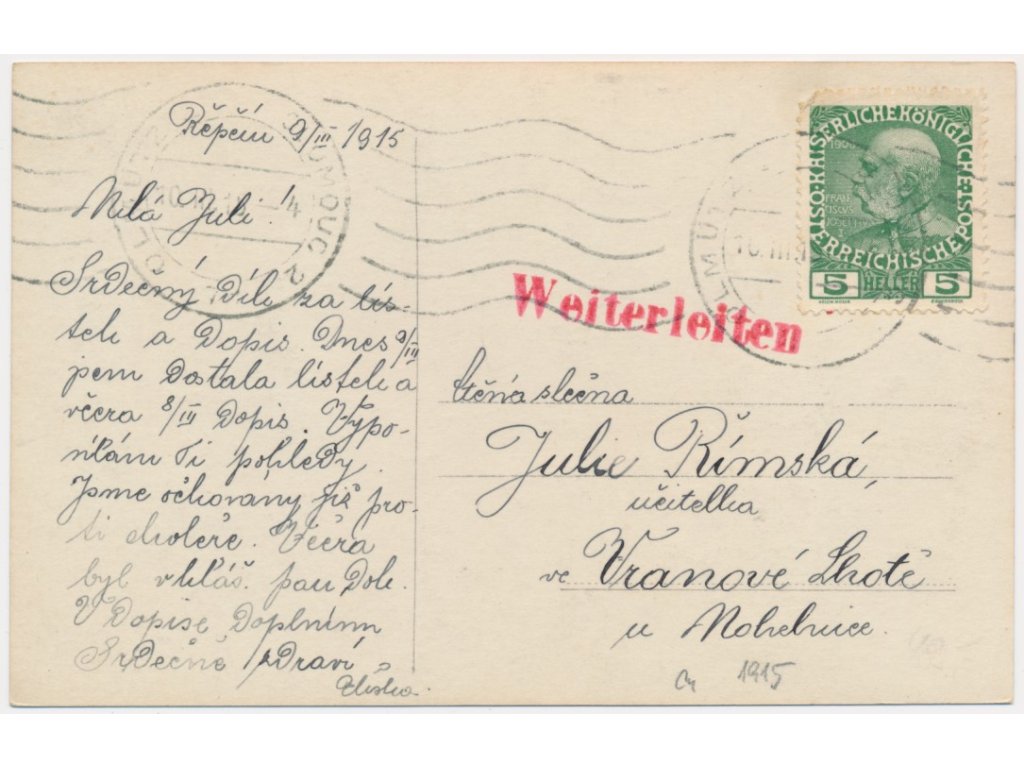 Řepčín 9/III 1915
Milá Juli!
Srdečný dík za lís-
tek a dopis. Dnes 9/III
jsem dostala lístek a
včera 8/III dopis. Vypo-
ůkám Ti pohledy.
Jsme očkovány již pro-
ti choleře. Včera
byl v hláš. pan Dole.
V dopise doplním
Srdečně zdraví
OLMÜTZ 2
OLOMOUC 2
Weiterleiten
KAISERLICHE KÖNIGLICHE ÖSTERREICHISCHE POST
1908
5 HELLER 5
Ctěná slečna
Julie Římská,
učitelka
ve Vranové Lhotě
u Mohelnice.
1915